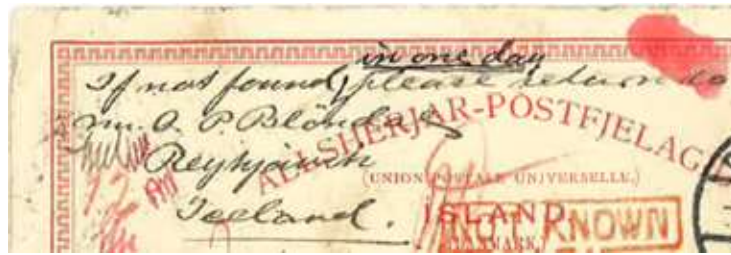 in one day
If not found, please return to
Mr. O. P. Blöndal
Reykjavik
Iceland.
ALLSHERJAR-POSTFJELAG
(UNION POSTALE UNIVERSELLE.)
ÍSLAND.
NOT KNOWN